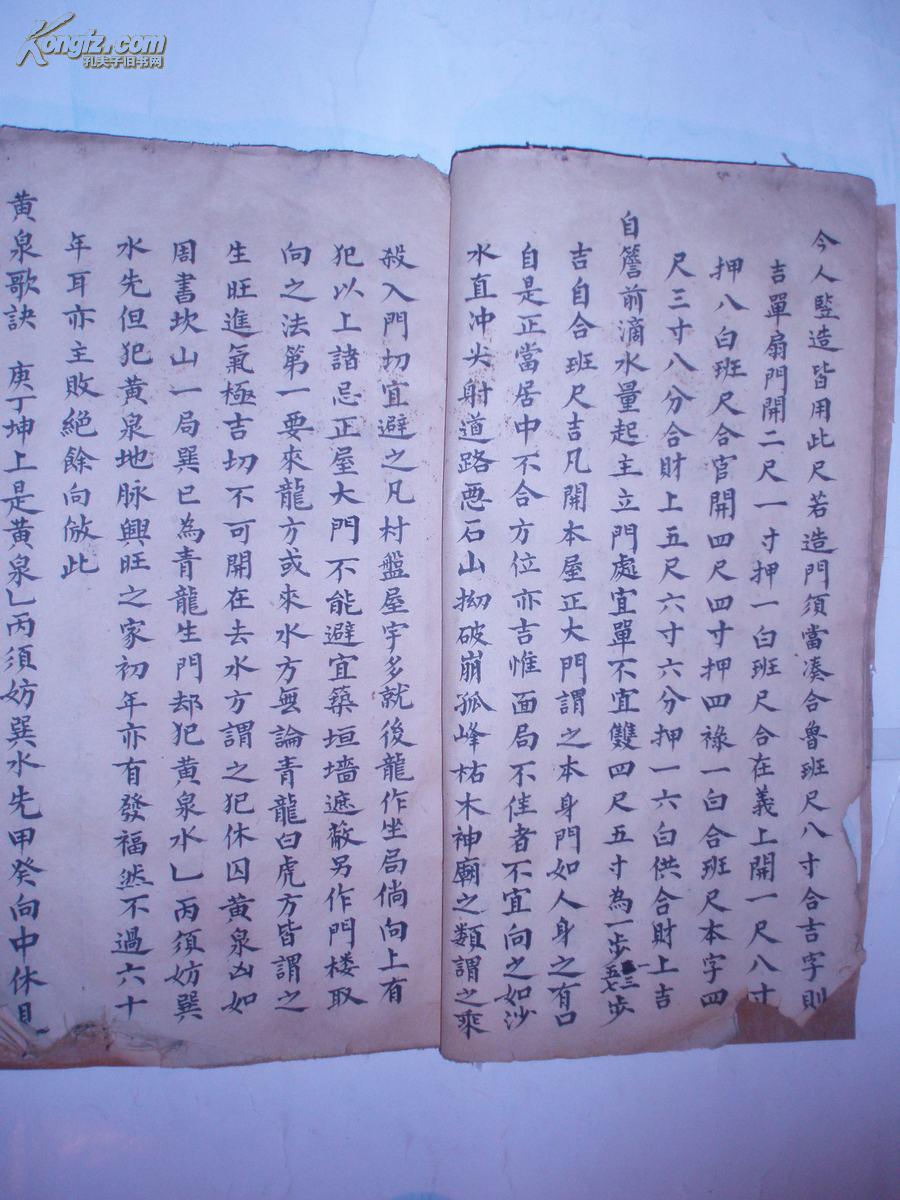 Kongfz.com
孔夫子旧书网
今人竪造皆用此尺若造門須當凑合魯班尺八寸合吉字則
吉單扇門開二尺一寸押一白班尺合在義上開一尺八寸
押八白班尺合官開四尺四寸押四祿一白合班尺本字四
尺三寸八分合財上五尺六寸六分押一六白供合財上吉
自簷前滴水量起主立門處宜單不宜雙四尺五寸為一步一三五七步
吉自合班尺吉凡開本屋正大門謂之本身門如人身之有口
自是正當居中不合方位亦吉惟面局不佳者不宜向之如沙
水直冲尖射道路惡石山拗破崩孤峰枯木神廟之類謂之乘
殺入門切宜避之凡村盤屋宇多就後龍作坐局倘向上有
犯以上諸忌正屋大門不能避宜築垣墻遮蔽另作門楼取
向之法第一要來龍方或來水方無論青龍白虎方皆謂之
生旺進氣極吉切不可開在去水方謂之犯休囚黄泉凶如
周書坎山一局巽巳為青龍生門却犯黄泉水乚丙須妨巽
水先但犯黄泉地脉興旺之家初年亦有發福然不過六十
年耳亦主敗絶餘向倣此
黄泉歌訣 庚丁坤上是黄泉乚丙須妨巽水先甲癸向中休見